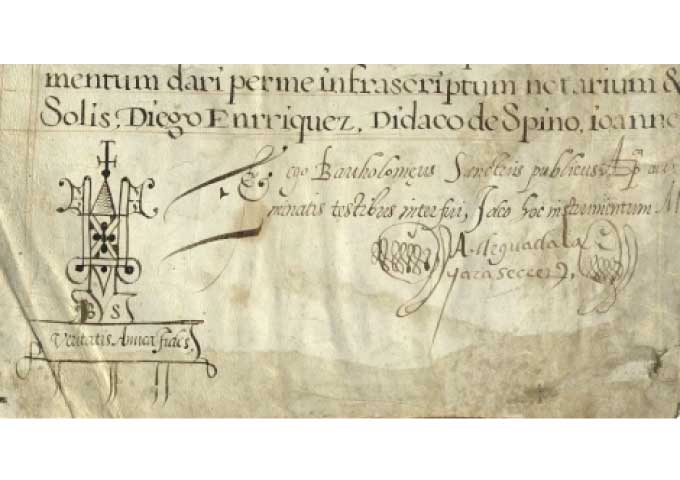 mentum dari per me infrascriptum notarium &
Solis, Diego Enrriquez, Didaco de Spino, ioanne
Ego Bartholomęus Sanctius publicus, Ap aux
minatis testibus interfui, Ideo hoc instrumentum
B S
Veritatis Amica fides